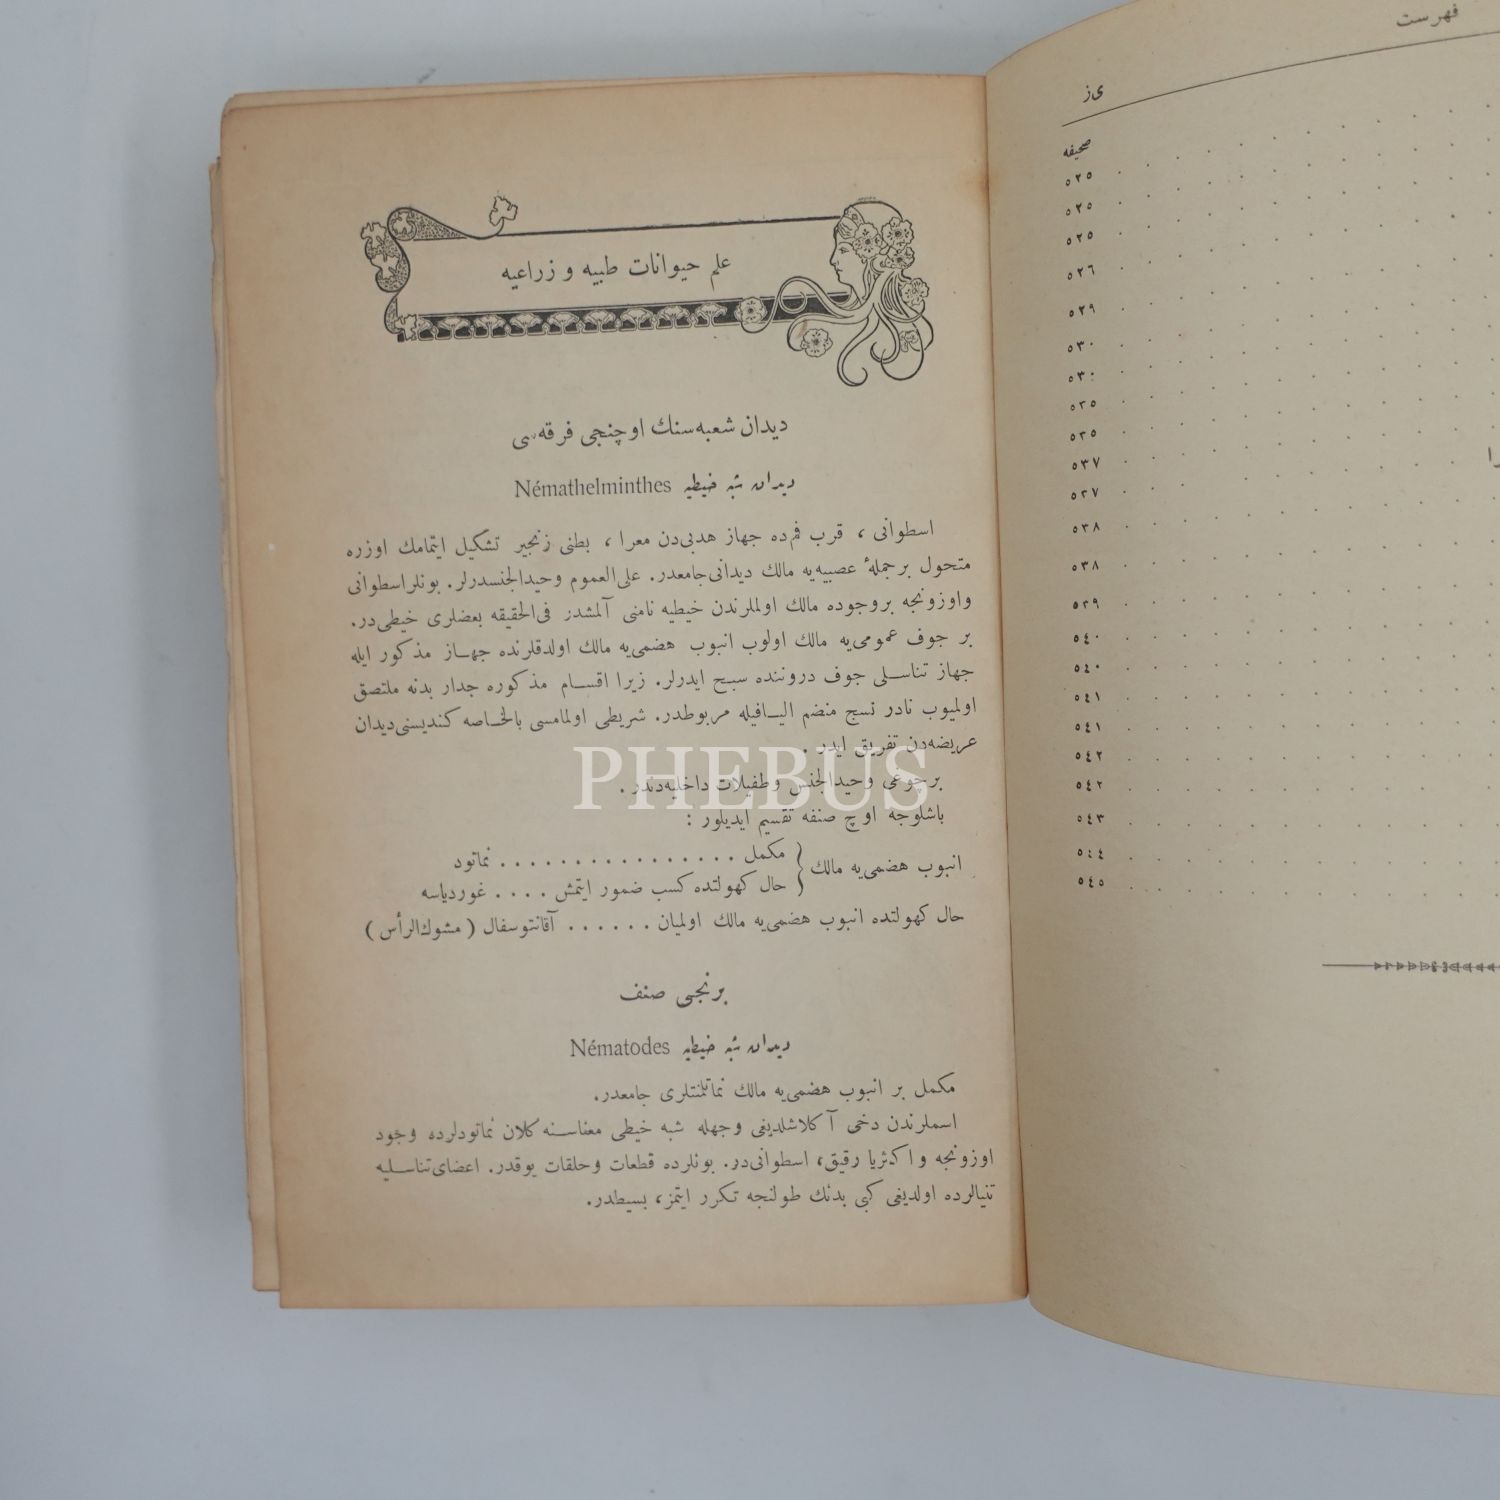 فهرست
ی‌ز
صحیفه
٥٢٥
٥٢٥
٥٢٥
٥٢٦
٥٢٩
٥٣٠
٥٣٠
٥٣٥
٥٣٥
٥٣٧
٥٣٧
٥٣٨
٥٣٨
٥٣٩
٥٤٠
٥٤٠
٥٤١
٥٤١
٥٤٢
٥٤٢
٥٤٣
٥٤٤
٥٤٥
علم حیوانات طبیه و زراعیه
دیدان شعبه‌سنك اوچنجی فرقه‌سی
دیدان شبه خیطیه Némathelminthes
اسطوانی ، قرب فم‌ده جهاز هدبی‌دن معرا ، بطنی زنجیر تشكیل ایتمامك اوزره
متحول برجملهٔ عصبیه‌یه مالك دیدانی‌جامعدر. علی‌العموم وحیدالجنسدرلر. بونلراسطوانی
واوزونجه بروجوده مالك اولملرندن خیطیه نامنی آلمشدر فی‌الحقیقه بعضلری خیطی‌در.
بر جوف عمومی‌یه مالك اولوب انبوب هضمی‌یه مالك اولدقلرنده جهاز مذكور ایله
جهاز تناسلی جوف دروننده سبح ایدرلر. زیرا اقسام مذكوره جدار بدنه ملتصق
اولمیوب نادر نسج منضم الیافیله مربوطدر. شریطی اولمامسی بالخاصه كندیسنی‌دیدان
عریضه‌دن تفریق ایدر .
برچوغی وحیدالجنس وطفیلات داخلیه‌دندر .
باشلوجه اوچ صنفه تقسیم ایدیلور :
انبوب هضمی‌یه مالك ( مكمل . . . . . . . . . . . . . . . . نماتود
( حال كهولتده كسب ضمور ایتمش . . . . غوردیاسه
حال كهولتده انبوب هضمی‌یه مالك اولمیان . . . . . . آقانتوسفال ( مشوك‌الرأس )
برنجی صنف
دیدان شبه خیطیه Nématodes
مكمل بر انبوب هضمی‌یه مالك نماتلنتلری جامعدر.
اسملرندن دخی آكلاشلدیغی وجهله شبه خیطی معناسنه كلان نماتودلرده وجود
اوزونجه واكثریا رقیق، اسطوانی‌در. بونلرده قطعات وحلقات یوقدر. اعضای‌تناسلیه
تنیالرده اولدیغی كبی بدنك طولنجه تكرر ایتمز، بسیطدر.
PHEBUS